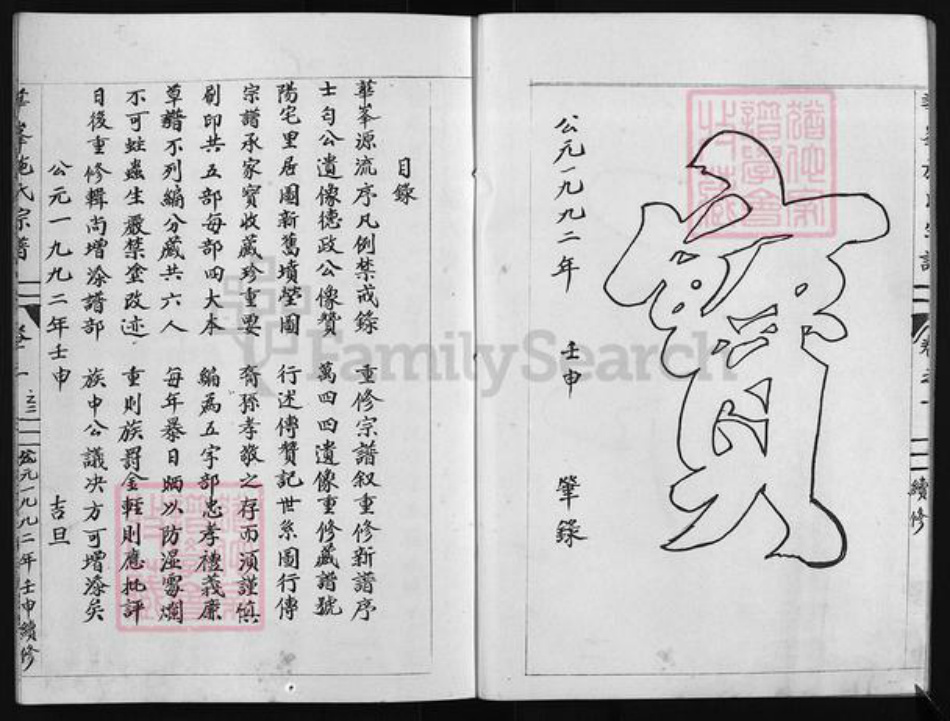 寶
公元一九九二年 壬申 肇錄
續修
目錄
華峯源流序凡例禁戒錄 重修宗譜叙重修新譜序
士匀公遺像德政公像贊 萬四四遺像重修藏譜號
陽宅里居圖新舊墳瑩圖 行述傳贊記世系圖行傳
宗譜承家寶收藏珍重要 裔孫孝敬之存而須謹慎
刷印共五部每部四大本 編為五字部忠孝禮義廉
草譜不列編分藏共六人 每年暴日晒以防湿霉爛
不可蛀蟲生嚴禁塗改迹 重則族罸金輕則應批評
日後重修輯尚增添譜部 族中公議决方可增添矣
公元一九九二年壬申 吉旦
峯施氏宗譜 卷 一 公元一九九二年壬申續修
FamilySearch